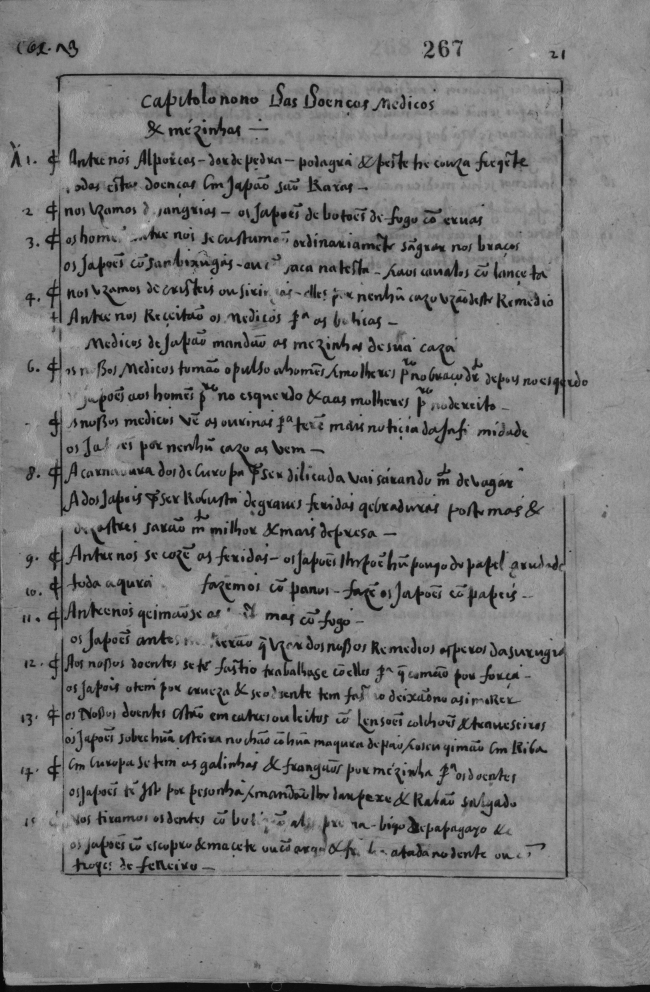 267
21
Capitolo nono Das Doenças Medicos
& mézinhas —
1. Antre nos Alporcas – dor de pedra – podagra & peste he couza freqẽte
todas estas doenças Em Japão são Raras —
2 nos vzamos de sangrias – os Japoẽs de botoẽs de fogo cõ ervas
3. os homẽs antre nos se custumão ordinariamẽte sãgrar nos braços
os Japoẽs cõ sanbixugas – ou faca na testa – & aos cavalos cõ lançeta
4. nos vzamos de cristeis ou siringas – elles por nenhũ cazo vzão deste Remedio
Antre nos Reçeitão os medicos pª as boticas —
Medicos de Japão mandão as mezinhas de sua caza
6. os nossos Medicos tomão o pulso a homẽs & molheres pro no braço drto depois no esqerdo
Japoẽs aos homẽs pro no esquerdo & aas molheres pro no dereito —
os nossos medicos vẽ as ourinas pª terẽ mais notiçia da Jnfirmidade
os Japoẽs por nenhũ cazo as vem —
8. A carnadura dos de Europa por ser dilicada vai sarando mto de vagar
A dos Japois por ser Robusta de graves feridas qebraduras postemas &
dezastres sarão mto milhor & mais depresa —
9. Antre nos se cozẽ as feridas – os Japoẽs lhe poẽ hũ pouqo de papel grudado
10. toda a qura fazemos cõ panos – fazẽ os Japoẽs cõ papeis —
11. Antre nos qeimãose as mas cõ fogo –
os Japoẽs antes morrerão q̃ vzar dos nossos Remedios asperos da surugia
12. Aos nossos doentes se tẽ fastio trabalhase cõ elles pª q̃ comão por força –
os Japois o tem por crueza & se o doente tem fastio deixãono asi moRer
13. os Nossos doentes Estão em catres ou leitos cõ Lensoẽs colchoẽs & traveseiros
os Japoẽs sobre hũa Esteira no chão cõ hũa maqura de pao & o seu qimão Em Riba
14. Em Europa se tem as galinhas & frangãos por mézinha pª os doentes
os Japoẽs tẽ Jsto por pesonha & mandão lhe dar pexe & Rabão salgado
Nos tiramos os dentes cõ botiqão alsaprema – biqo de papagayo &c
os Japoẽs cõ escopro & maçete ou cõ arqo & frecha atada no dente ou cõ
troqes de feReiro —